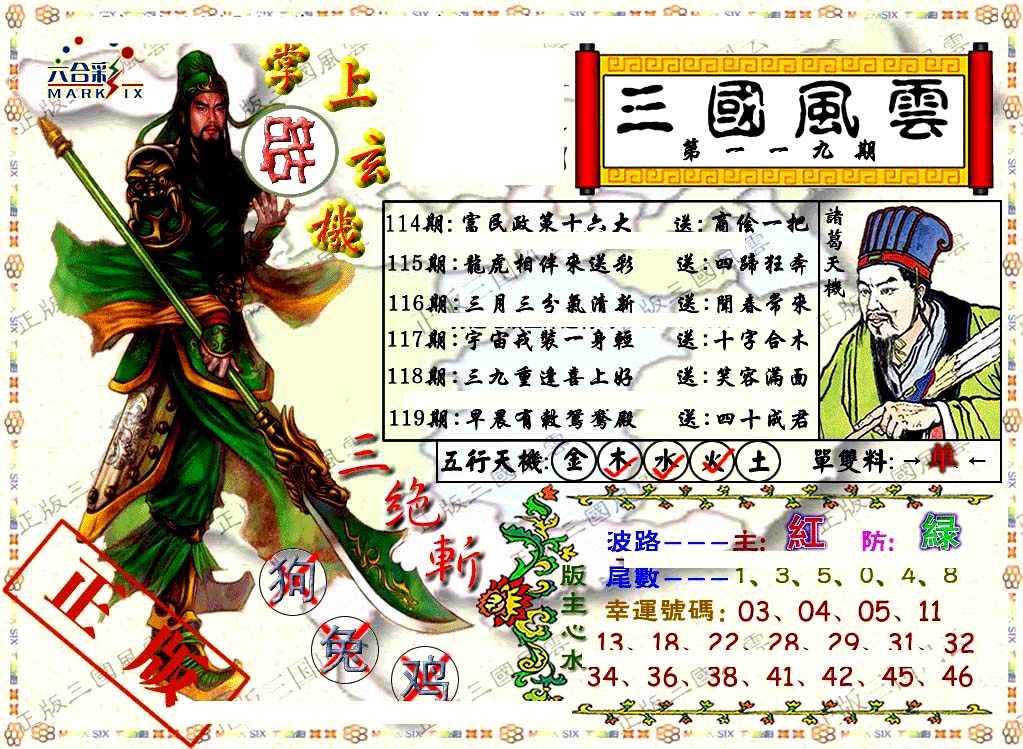 六合彩
MARK SIX
掌上玄機
三國風雲
第一一九期
114期:富民政策十六大 送:商侩一把
115期:龍虎相伴來送彩 送:四歸狂奔
116期:三月三分氣清新 送:聞春常來
117期:宇宙戎裝一身輕 送:十字合木
118期:三九重逢喜上好 送:笑容滿面
119期:早晨有穀鴛鴦殿 送:四十成君
諸葛天機
五行天機:金木水火土 單雙料:→单←
三絕斬
狗
兔
鸡
正版
版主心水
波路———主:紅 防:綠
尾數———1、3、5、0、4、8
幸運號碼:03、04、05、11
13、18、22、28、29、31、32
34、36、38、41、42、45、46